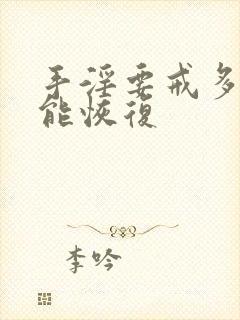 手淫要戒多
能恢復
李吟